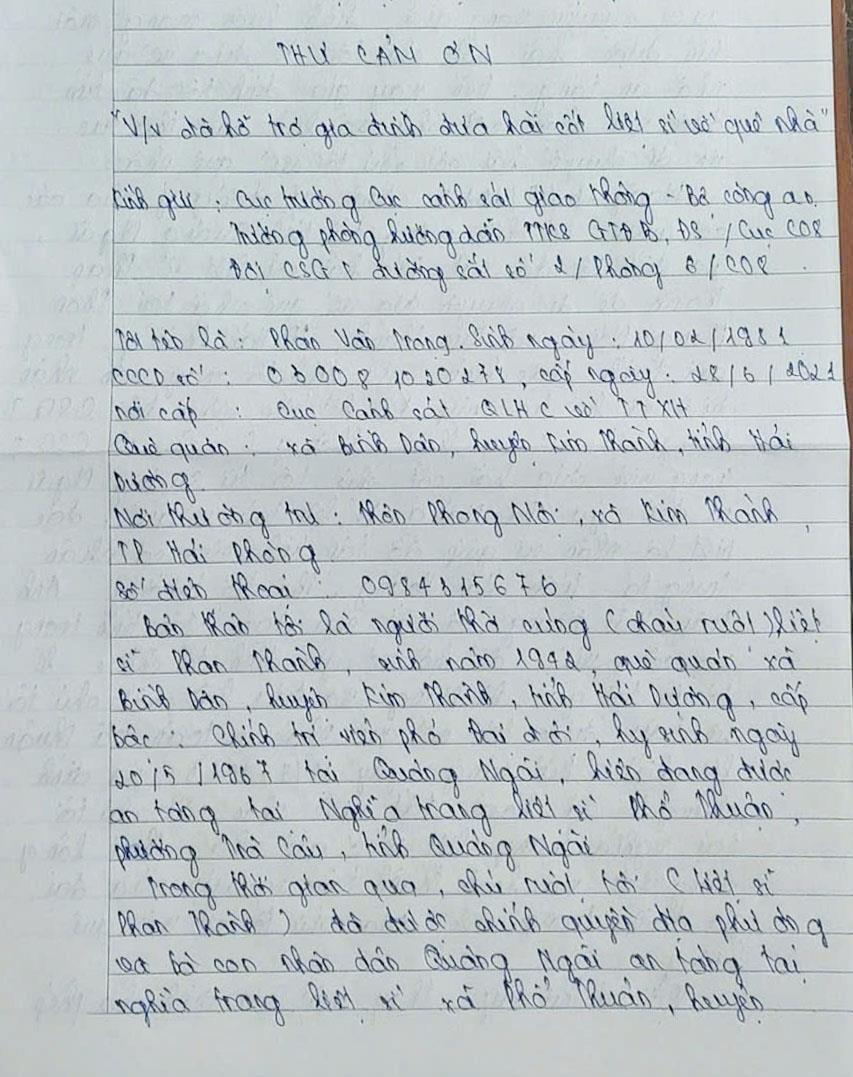 THƯ CẢM ƠN
"V/v đã hỗ trợ gia đình đưa hài cốt liệt sĩ về quê nhà"
Kính gửi : Cục trưởng Cục cảnh sát giao thông - Bộ công an.
Trưởng phòng hướng dẫn TTKS GTĐB, ĐS / Cục C08
Đội CSGT đường sắt số 2 / Phòng 6 / C08 .
Tôi tên là : Phan Văn Trang. Sinh ngày : 10/02/1981
CCCD số : 030081020278, cấp ngày : 28/6/2021
nơi cấp : Cục Cảnh sát QLHC về TTXH
Quê quán : xã Bình Dân, huyện Kim Thành, tỉnh Hải
Dương.
Nơi thường trú : thôn Phong Nội, xã Kim Thành,
TP Hải Phòng
Số điện thoại : 0984315676
Bản thân tôi là người thờ cúng (cháu ruột) liệt
sĩ Phan Thanh, sinh năm 1942, quê quán xã
Bình Dân, huyện Kim Thành, tỉnh Hải Dương, cấp
bậc : Chính trị viên phó Đại đội, hy sinh ngày
20/5/1967 tại Quảng Ngãi, hiện đang được
an táng tại Nghĩa trang liệt sĩ Phổ Thuận,
phường Trà Câu, tỉnh Quảng Ngãi
Trong thời gian qua, chú ruột tôi (liệt sĩ
Phan Thanh) đã được chính quyền địa phương
và bà con nhân dân Quảng Ngãi an táng tại
nghĩa trang liệt sĩ xã Phổ Thuận, huyện